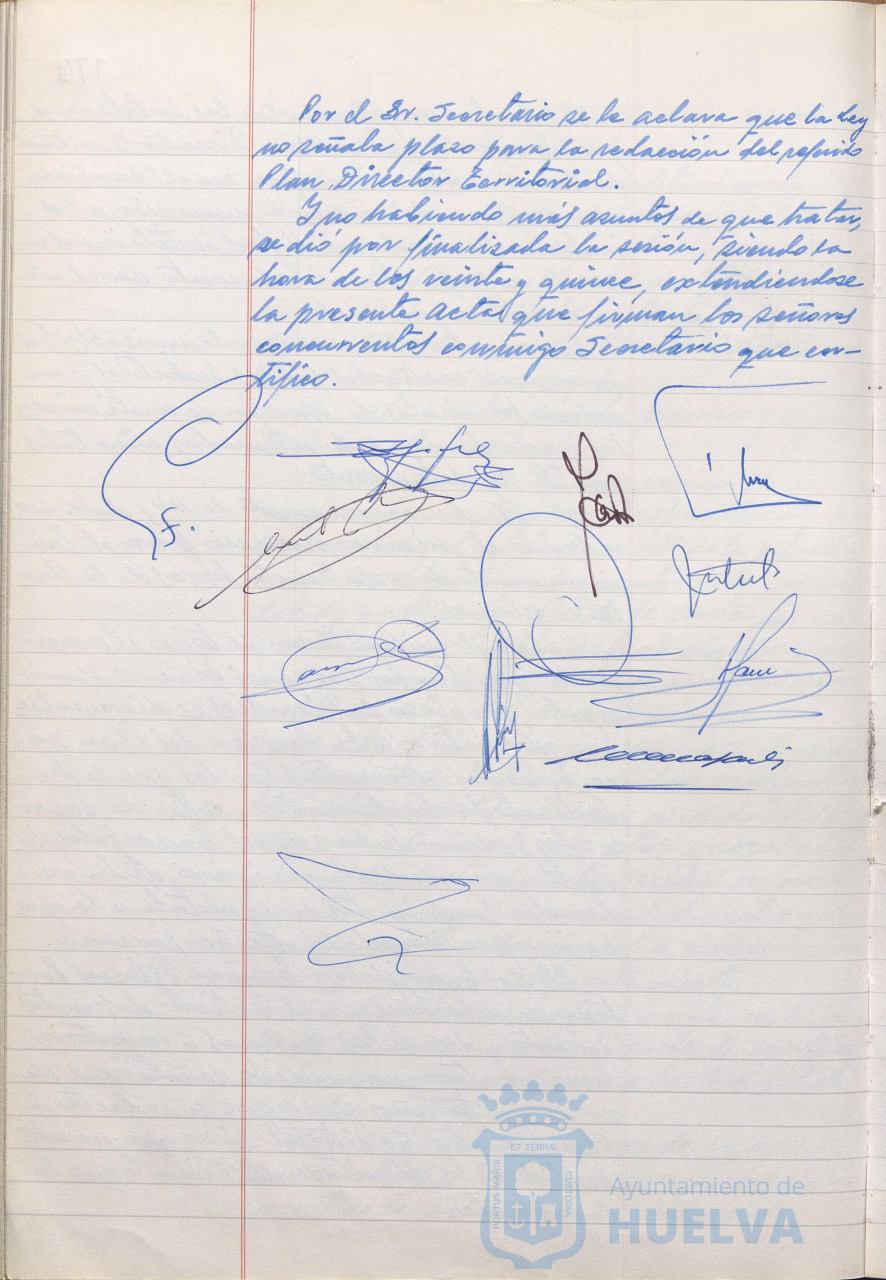 Por el Sr. Secretario se le aclara que la Ley
no señala plazo para la redacción del referido
Plan Director Territorial.
Y no habiendo más asuntos de que tratar,
se dió por finalizada la sesión, siendo la
hora de las veinte y quince, extendiendose
la presente acta que firman los señores
concurrentes conmigo Secretario que cer-
tifico.
F.
PORTUS MARIS
ET TERRÆ
CUSTODIA
Ayuntamiento de
HUELVA